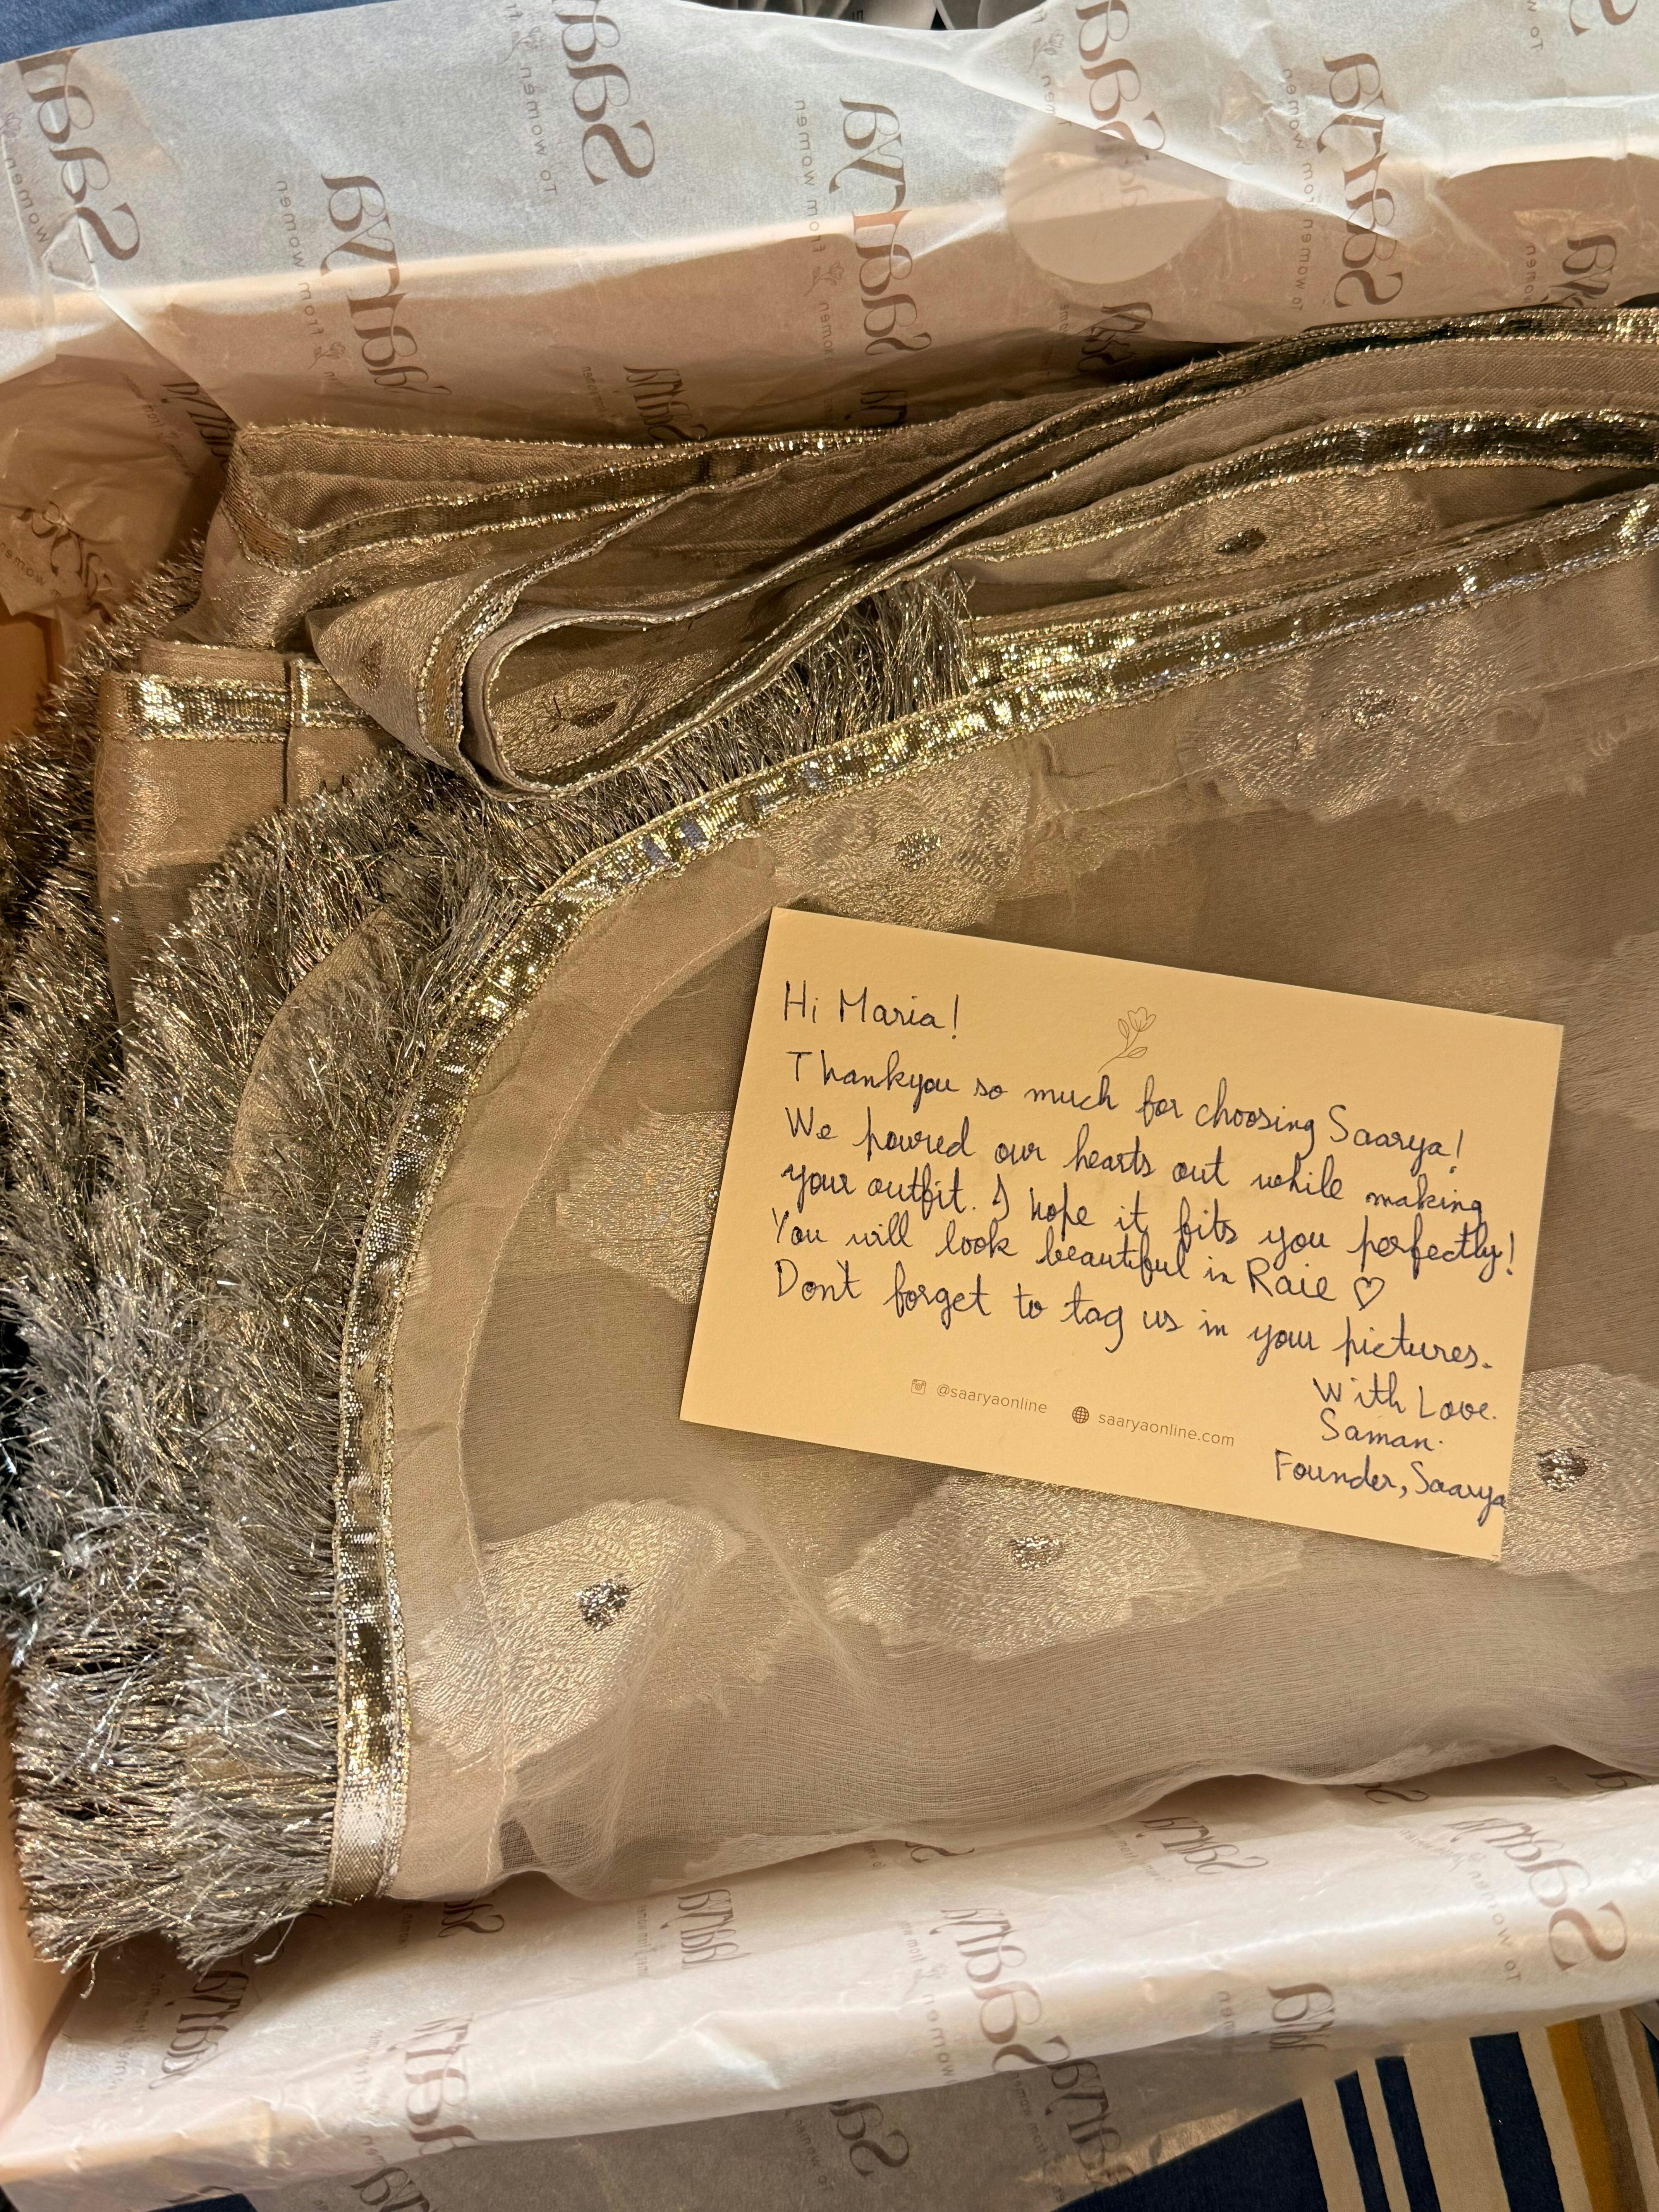 Hi Maria!
Thankyou so much for choosing Saarya!
We poured our hearts out while making
your outfit. I hope it fits you perfectly!
You will look beautiful in Raie ♡
Don't forget to tag us in your pictures.
With Love.
Saman.
Founder, Saarya
@saaryaonline saaryaonline.com
Saarya
To women from women